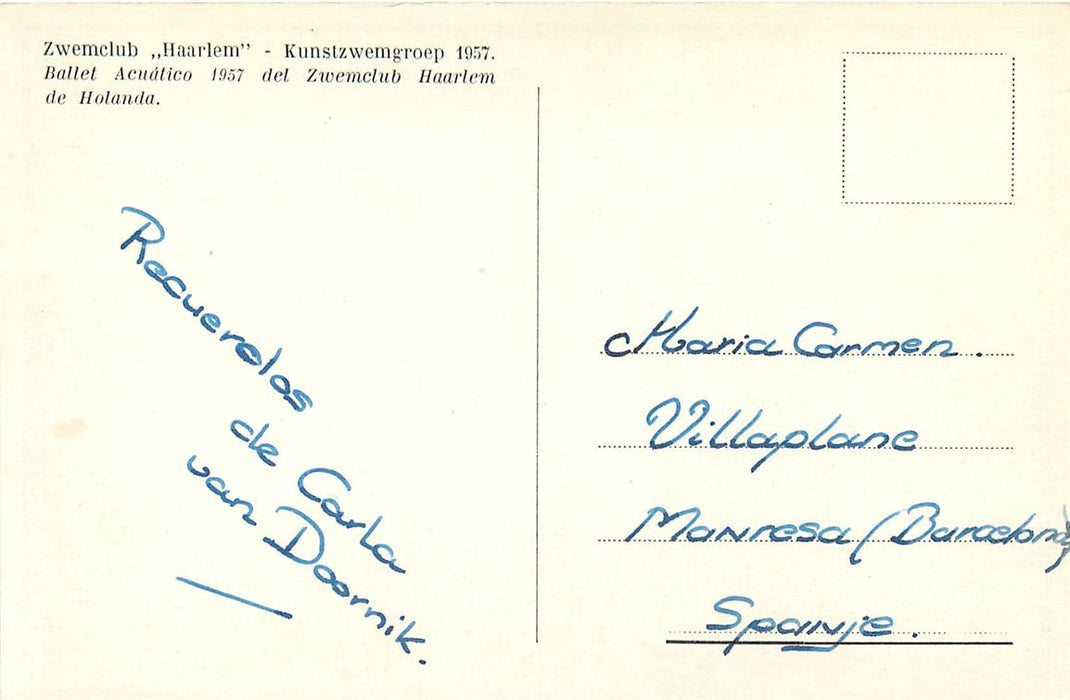 Zwemclub „Haarlem” - Kunstzwemgroep 1957.
Ballet Acuático 1957 del Zwemclub Haarlem
de Holanda.
Recuerdos
de Carla
van Doornik.
Maria Carmen.
Villaplane
Manresa (Barcelona)
Spanje.